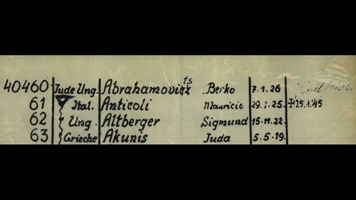 40460 Jude Ung. Abrahamovicz ts Berko 7.1.26
61 Ital. Anticoli Mauricio 29.1.25. 15.1.45
62 Ung. Altberger Sigmund 15.11.22.
63 Grieche Akunis Juda 5.5.19.